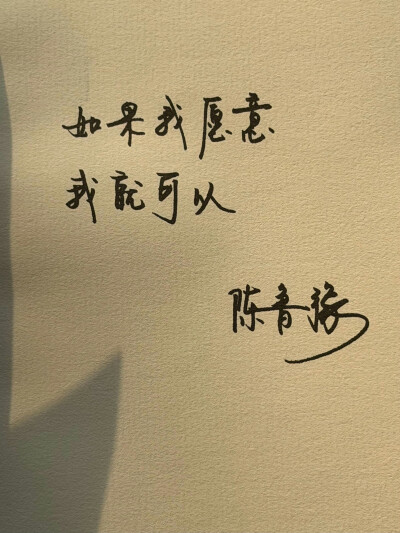 如果我愿意
我就可以
陈鲁豫